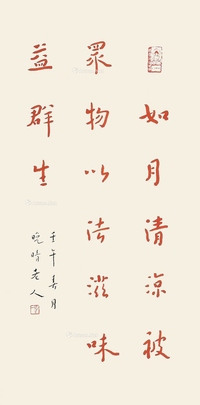 如月清涼被
眾物以法滋味
益群生
壬午春月
晚晴老人